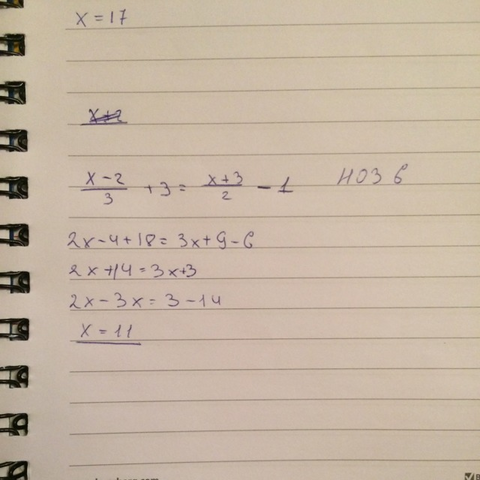 x = 17
x+2
x-2/3 + 3 = x+3/2 - 1 НОЗ 6
2x-4+18 = 3x+9-6
2x+14 = 3x+3
2x-3x = 3-14
x = 11